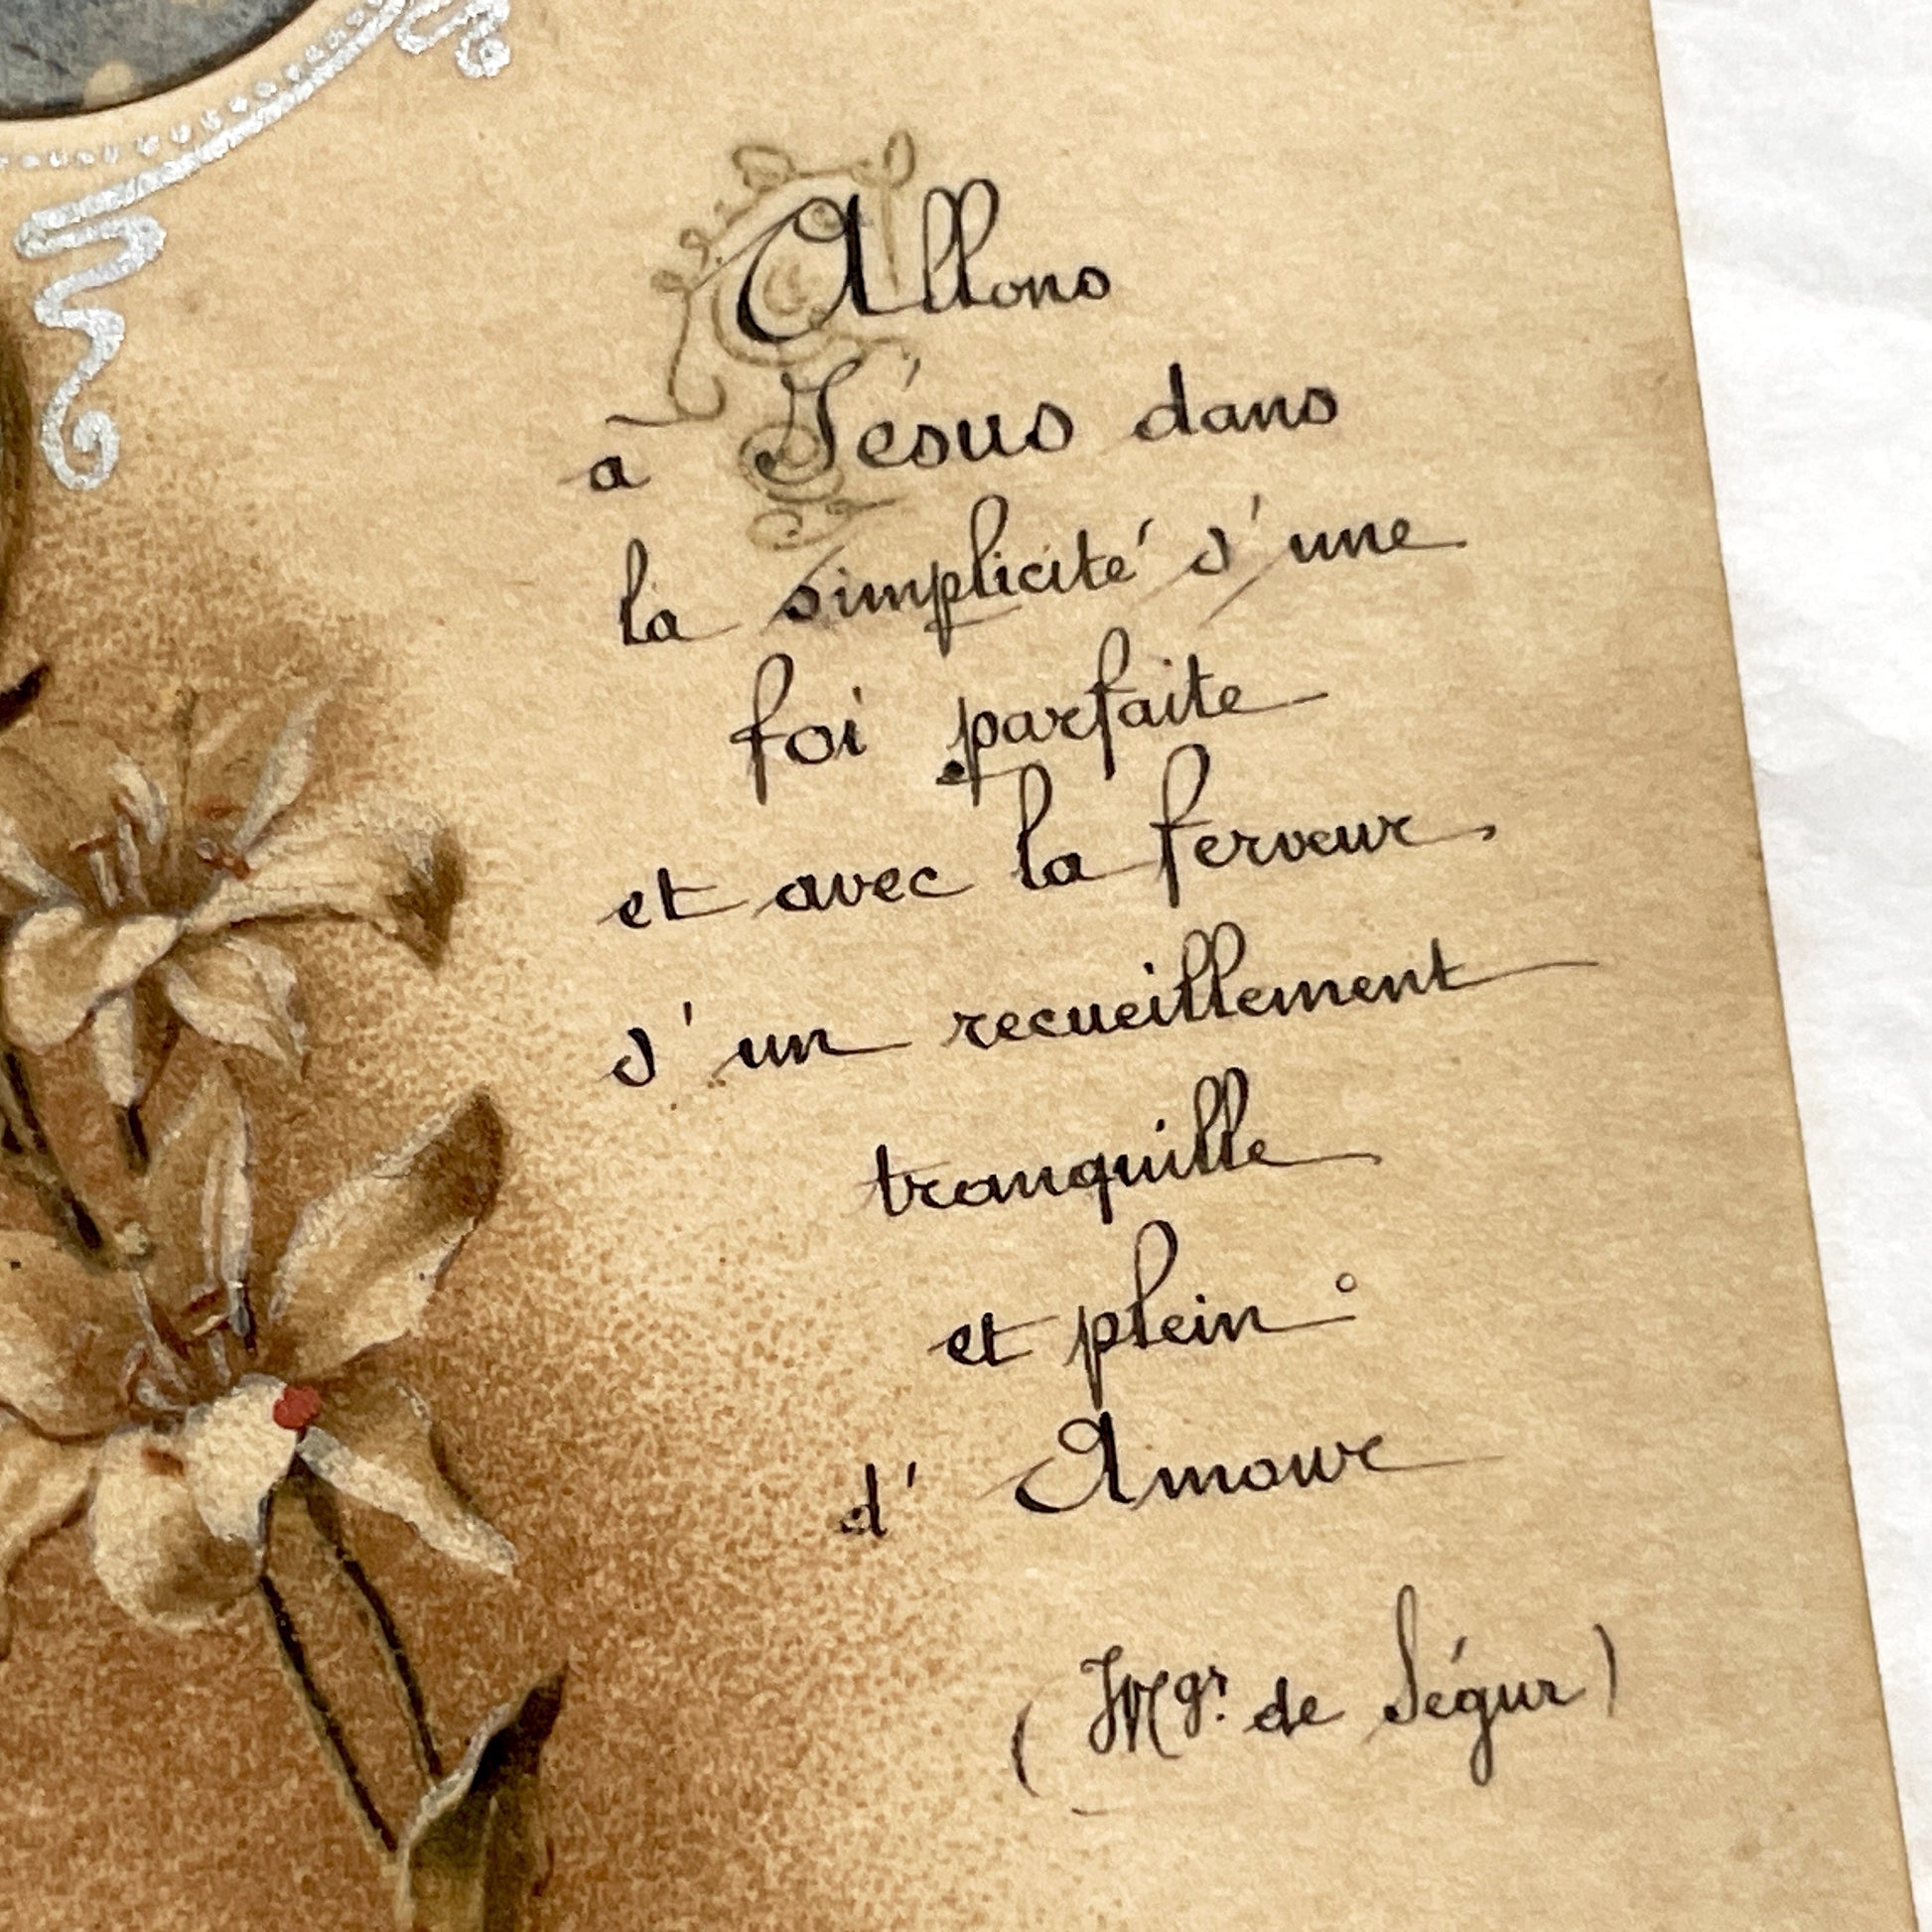 Allons
à Jésus dans
la simplicité d'une
foi parfaite
et avec la ferveur
d'un recueillement
tranquille
et plein
d'Amour
(Mgr. de Ségur)